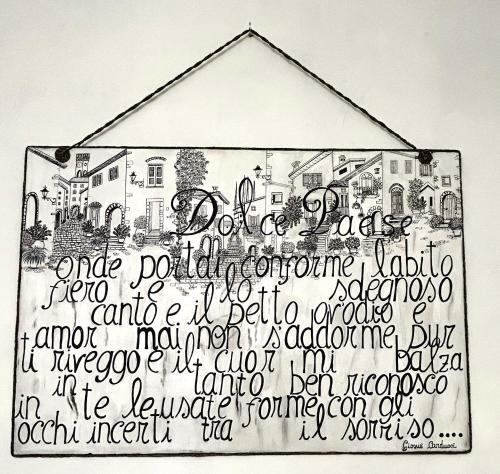 Dolce Paese
onde portai conforme labito
fiero e lo sdegnoso
canto e il petto ovodio e
amor mai non s'addorme pur
ti riveggo e il cuor mi balza
in tanto ben riconosco
in te le usate forme con gli
occhi incerti tra il sorriso....
Giosuè Carducci